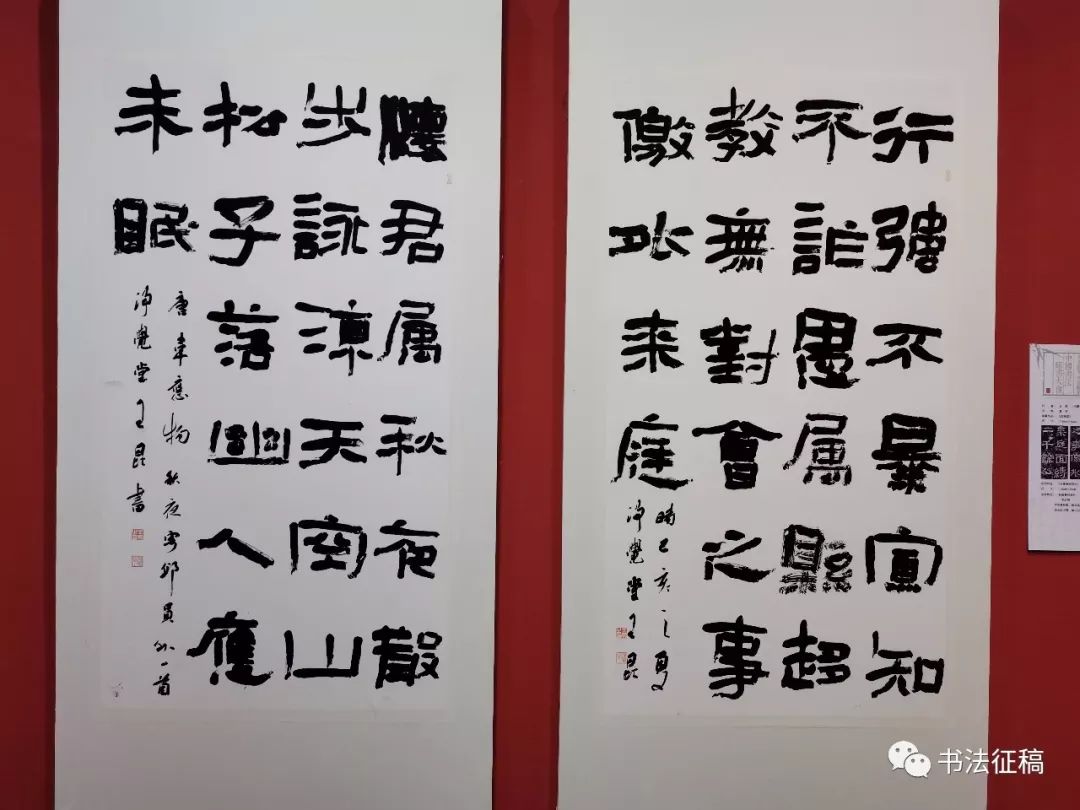 行強不暴寡知
不詐愚属縣趍
教無對會之事
儌外来庭
時己亥之夏
淨覺堂王昆
懷君属秋夜散
步詠涼天空山
松子落幽人應
未眠
唐韋應物秋夜寄邱員外一首
淨覺堂王昆書
书法征稿